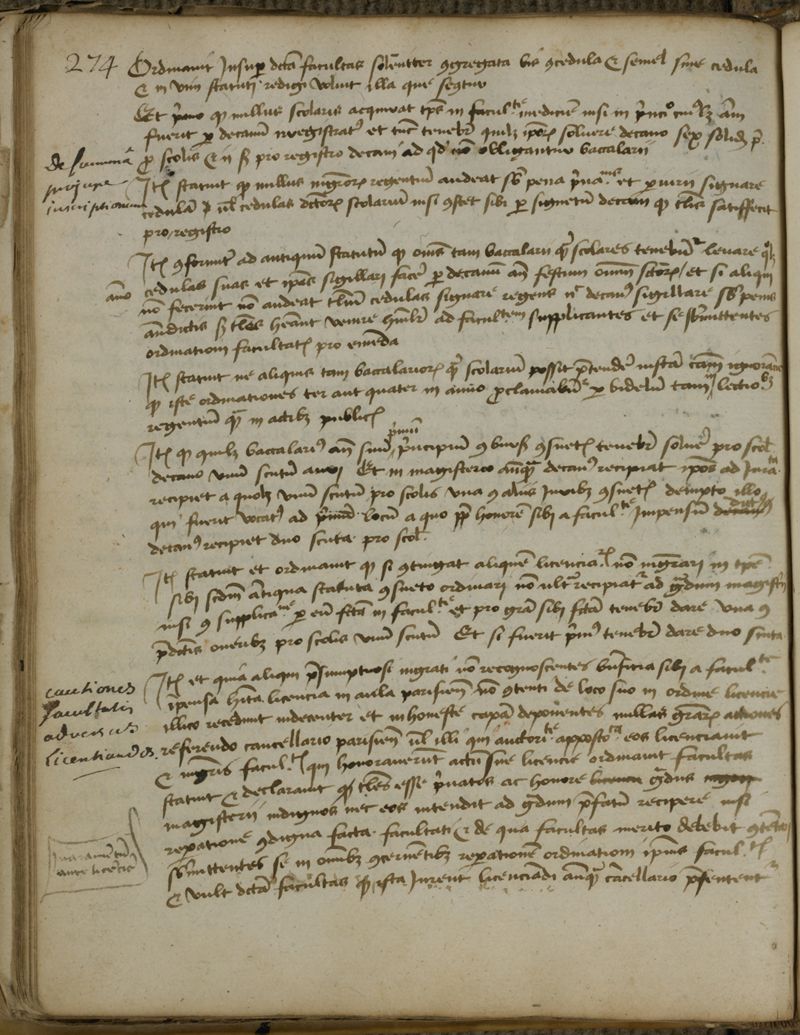 274
Ordinavit Insuper dcta facultas solenniter congregata bis cum cedula et semel sine cedula
et in vim statuti redigi voluit illa que sequntur
Et primo quod nullus scolaris acquirat tps in facultate medicine nisi in principio cuiuslibet anni
fuerit per decanum inregistratus et tunc tenebitur quilibet ipsorum solvere decano sex solidos p.
pro scolis et ii s pro registro decani ad quod non obligantur baccalarii
de summa
inscriptionum
Item statuit quod nullus magistrorum regentium audeat sub pena signare
cedulam vel cedulas dictorum scolarium nisi constet sibi per signetum decani quod talis satisfecit
pro registro
Item conformiter ad antiquum statutum quod omnes tam baccalarii quam scolares tenebuntur levare
cedulas suas et ipsas sigillari facere per decanum ante festum omnium sanctorum et si aliqui
non fecerint non audeat talium cedulas signare regens nec decanus sigillare sub penis
antedictis sed tales habeant venire humiliter ad facultatem supplicantes et se submittentes
ordinationi facultatis pro emenda
Item statuit ne aliquis tam baccalariorum quam scolarium possit pretendere iustam causam ignorantie
quod iste ordinationes ter aut quater in anno proclamabuntur per bidellum tam in lectionibus
regentium quam in actibus publicis
Item quod quilibet baccalarius ante suum primum principium cum bursis consuetis tenebitur solvere pro scolis
decano unum scutum auri Et in magisterio antequam decanus recipiat ipsos ad
recipiet a quolibet unum scutum pro scolis una cum aliis iuribus consuetis dempto illo
qui fuerit vocatus ad primum locum a quo propter honorem sibi a facultate impensum
decanus recipiet duo scuta pro scolis
Item statuit et ordinavit quod si contingat aliquem licenciatorum non magistrari in tempore
sibi secundum antiqua statuta consueto ordinari non ultra recipiatur ad gradum magisterii
nisi cum supplicatione per eum facta in facultate et pro gratia sibi facta tenebitur dare una cum
predictis oneribus pro scolis unum scutum Et si fuerit primus tenebitur dare duo scuta
cautiones
facultatis
adversus
licentiandos
Item et quia aliqui presumptuosi ingrati non recognoscentes beneficia sibi a facultate
impensa habita licencia in aula parisiensi non contenti de loco suo in ordine licencie
illico recedunt indecenter et inhoneste capam deponentes nullas gratiarum actiones
referendo cancellario parisiensi vel illi qui auctoritate apostolica eos licenciavit
et magistris facultatis qui honoraverunt actum sue licencie ordinavit facultas
statuit et declaravit quod tales esse privatos ac honore gradus
magisterii indignos nec eos intendit ad gradum prefatum recipere nisi
reparatione condigna facta facultati et de qua facultas merito debebit contentari
submittentes se in omnibus concernentibus reparationem ordinationi ipsius facultatis
et vult dicta facultas quod ista iurent licenciandi antequam cancellario presententur
Iuramentum
ante licencie